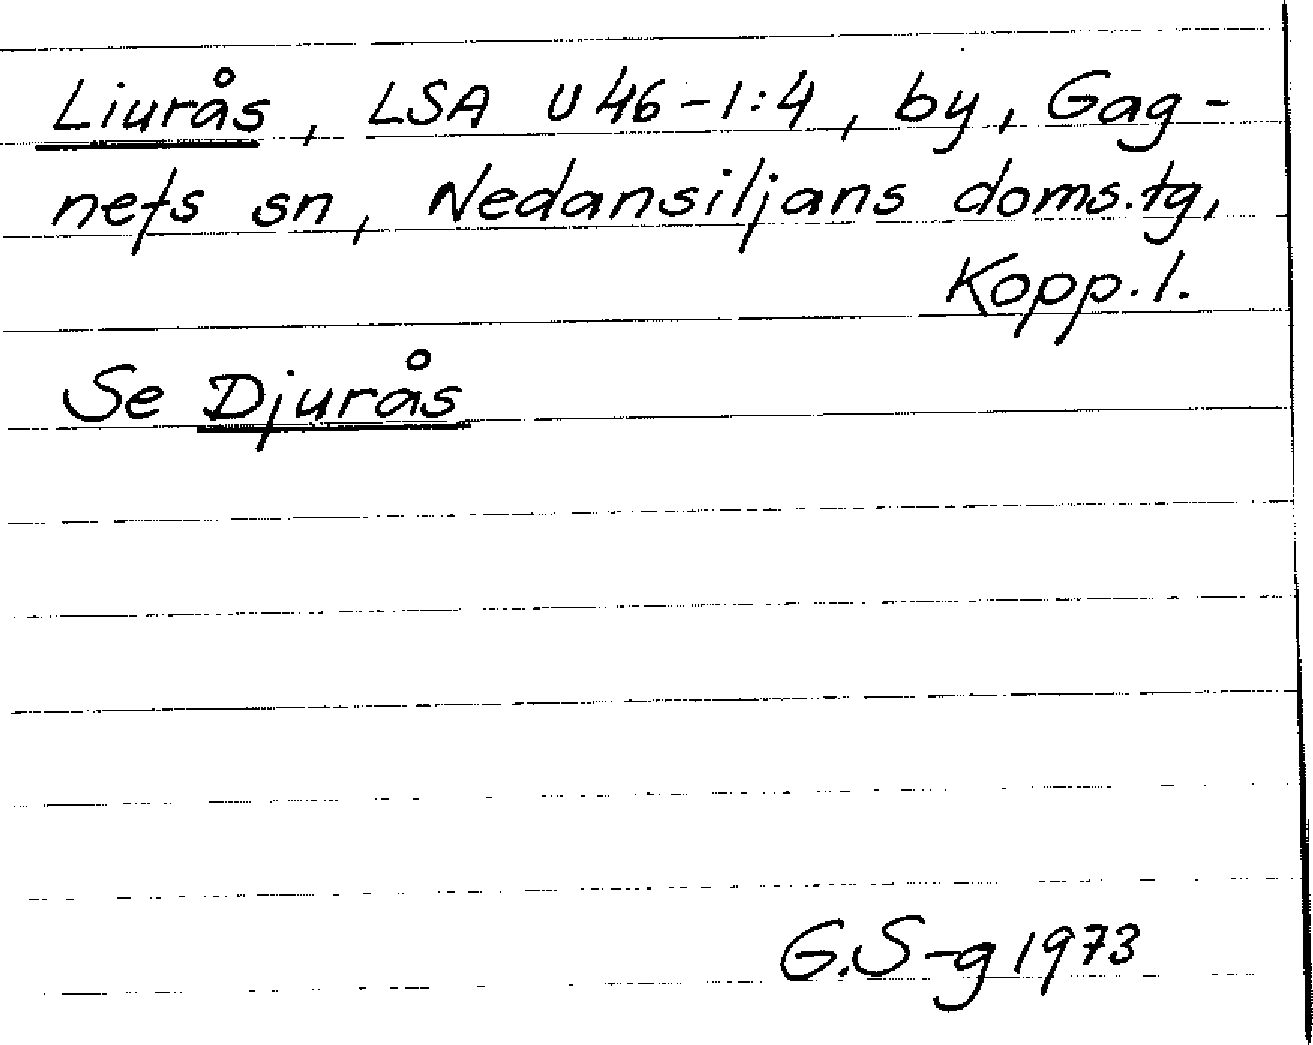 Liurås, LSA U 46-1:4, by, Gag-
nefs sn, Nedansiljans doms.tg,
Kopp.l.
Se Djurås
G.S-g 1973